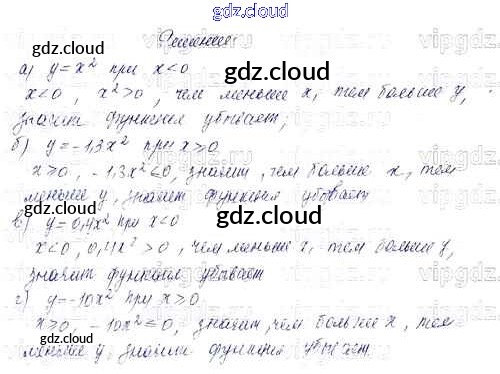 gdz.cloud
Решение
gdz.cloud
gdz.cloud
а) y = x² при x<0
x<0, x²>0, чем меньше x, тем больше y,
значит функция убывает;
gdz.cloud
б) y = -1,3x² при x>0
x≥0, -1,3x²≤0, значит, чем больше x, тем
меньше y, значит функция убывает
gdz.cloud
gdz.cloud
в) y = 0,4x² при x<0
x<0, 0,4x²>0, чем меньше x, тем больше y,
значит функция убывает
gdz.cloud
г) y = -10x² при x≥0
x≥0, -10x²≤0, значит, чем больше x, тем
меньше y, значит функция убывает.
gdz.cloud
gdz.cloud